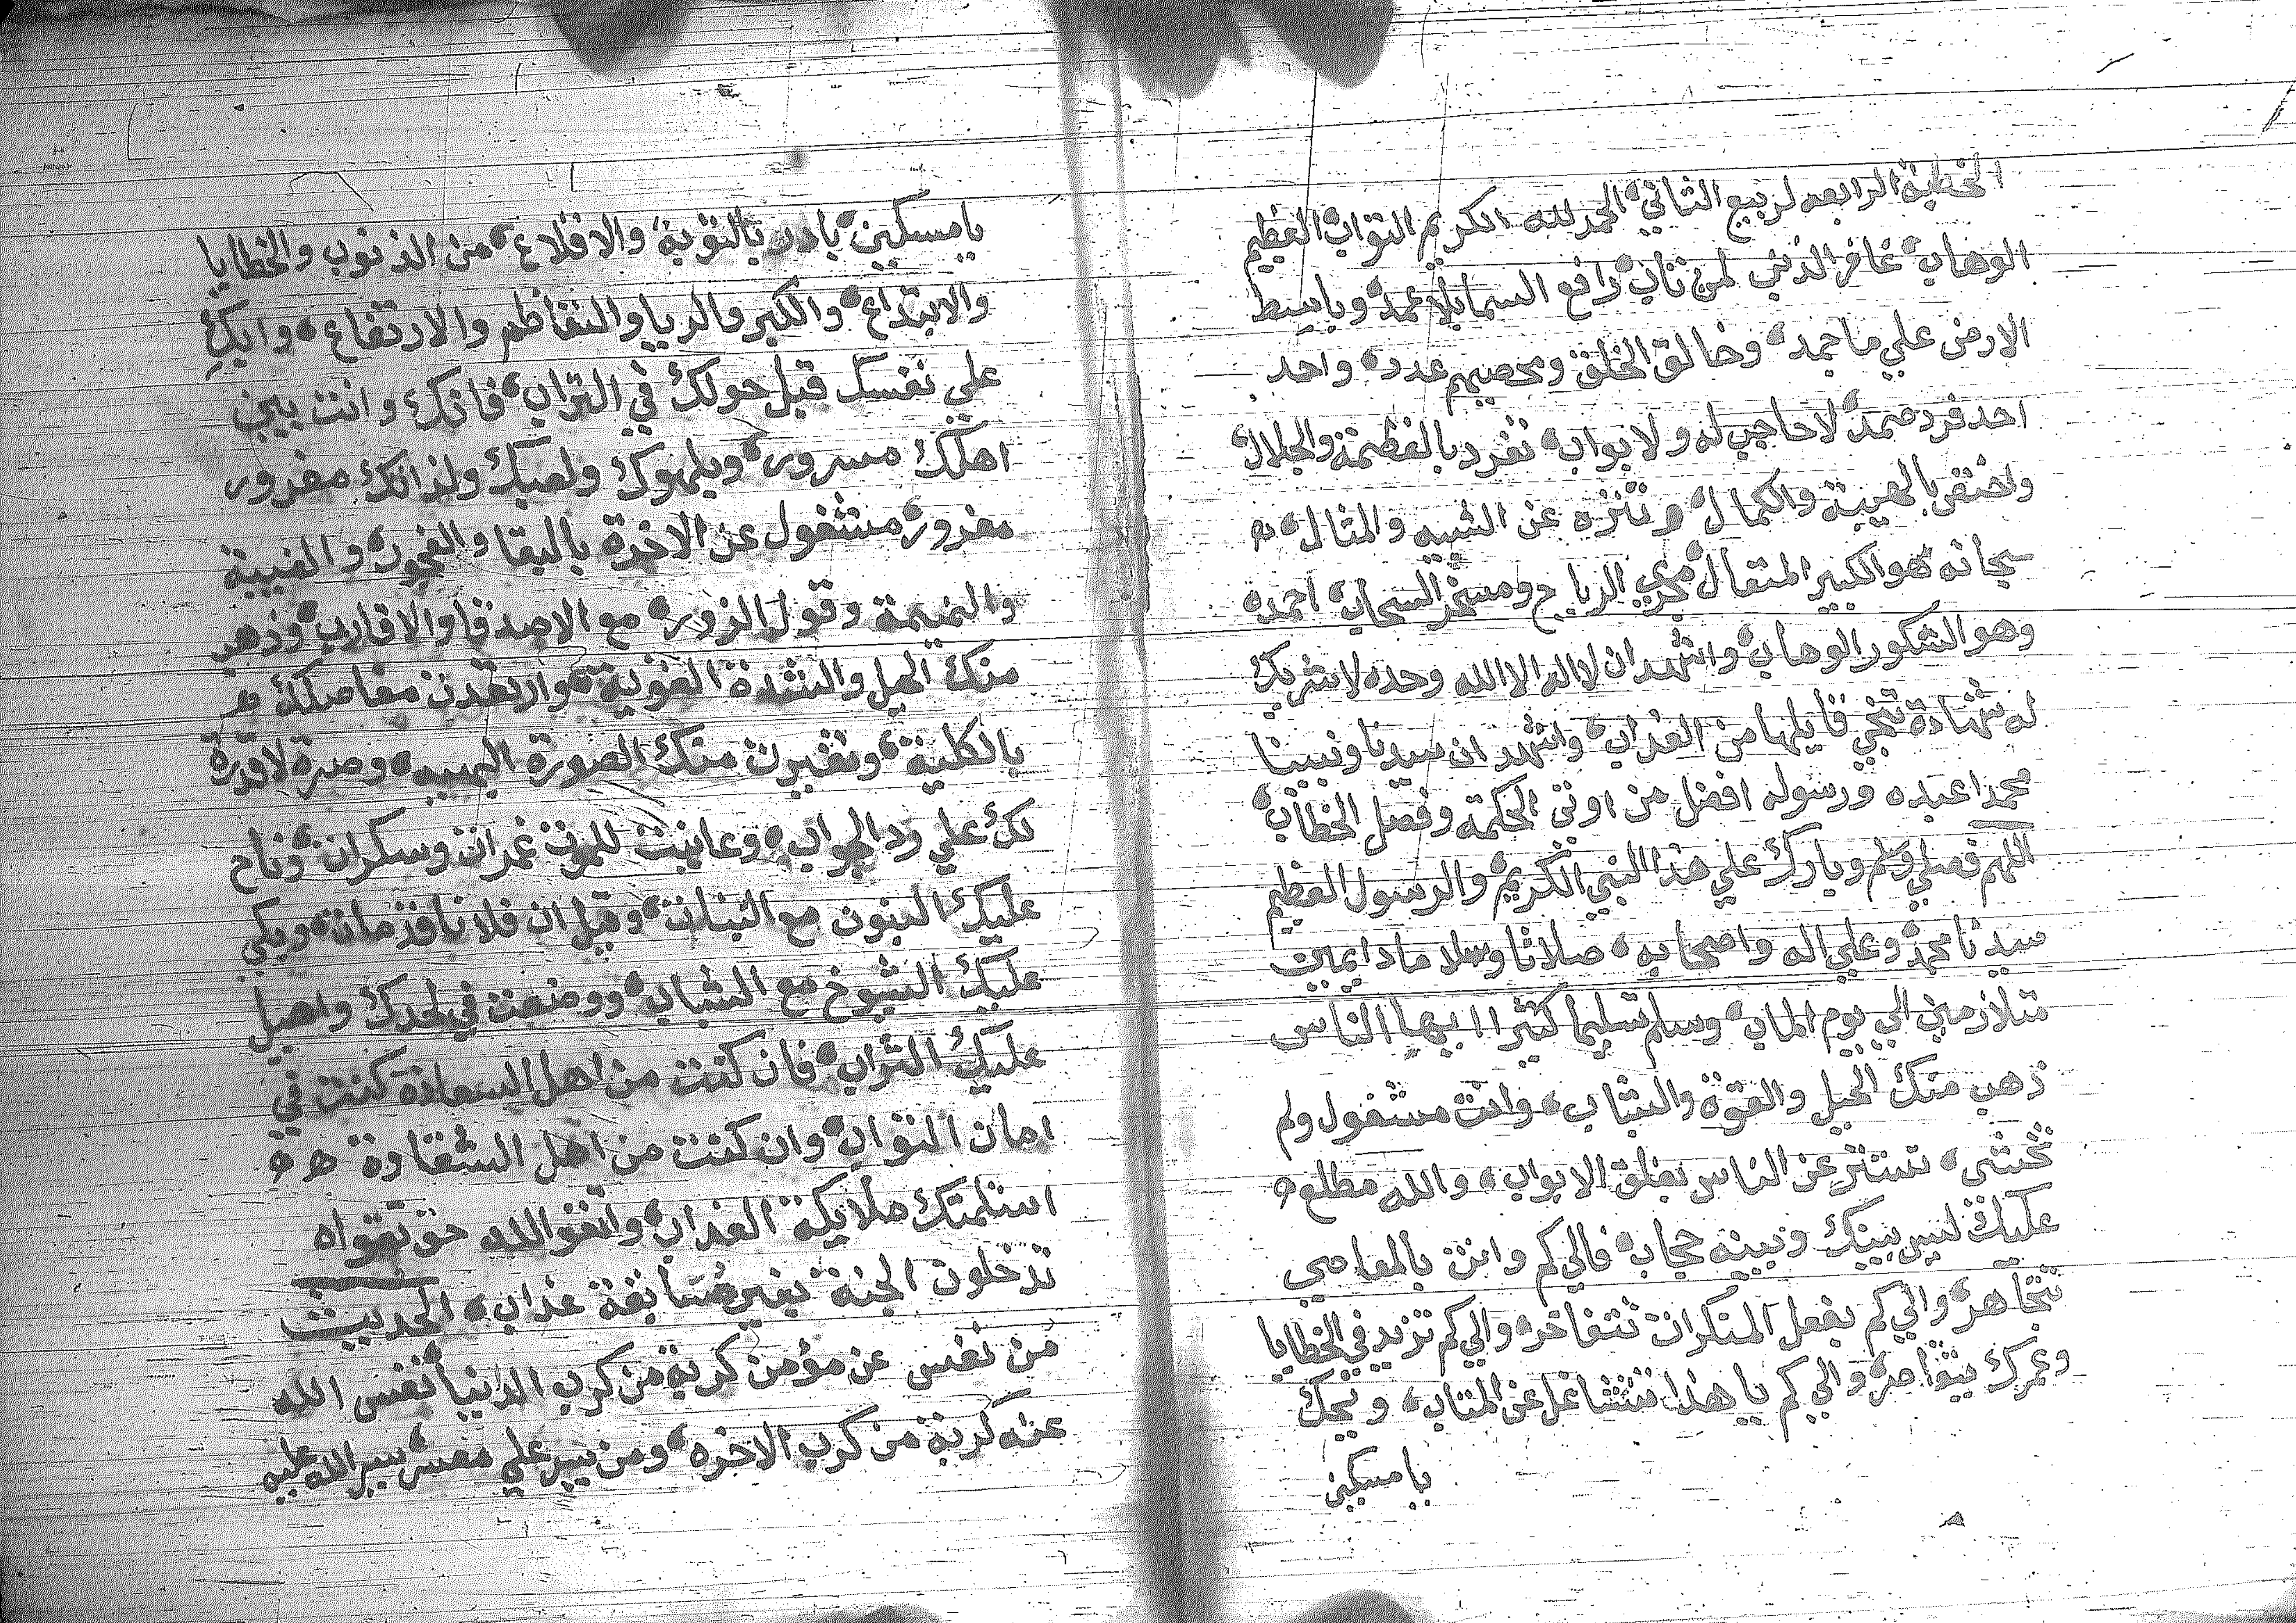 الخطبة الرابعه لربيع الثاني، الحمد لله الكريم التواب، العظيم
الوهاب، غافر الذنب لمن تاب، رافع السما بلا عمد، وباسط
الارض علي ما جمد، وخالق الخلق ومحصيهم عدد، واحد
احد فرد صمد، لا حاجب له ولا بواب، تفرد بالعظمة والجلال،
واختص بالهيبة والكمال، وتنزه عن الشبيه والمثال،
سبحانه هو الكبير المتعال، مجري الرياح ومسخر السحاب، احمده
وهو الشكور الوهاب، واشهد ان لا اله الا الله وحده لا شريك
له شهادة تنجي قايلها من العذاب، واشهد ان سيدنا ونبينا
محمدا عبده ورسوله افضل من اوتي الحكمة وفصل الخطاب،
اللهم فصلي وسلم وبارك علي هذا النبي الكريم، والرسول العظيم
سيدنا محمد، وعلي اله واصحابه، صلاتا وسلاما دايمين
متلازمين الي يوم الماب، وسلم تسليما كثيرا ايها الناس
ذهب منك الحيل والقوة والشباب، وانت مشغول ولم
تخشي، تستتر عن الناس بغلق الابواب، والله مطلع
عليك ليس بينك وبينه حجاب، فالي كم وانت بالمعاصي
تتجاهر، والي كم بفعل المنكرات تتفاخر، والي كم تزيد في الخطايا
وعمرك يتقاصر، والي كم يا هذا تتشاغل عن المتاب، ويحك
يا مسكين
يا مسكين، بادر بالتوبة، والاقلاع، من الذنوب والخطايا
والابتداع، والكبر والريا والتعاظم والارتفاع، وابك
علي نفسك قبل حولك في التراب، فانك وانت بين
اهلك مسرور، وبلهوك ولعبك ولذاتك مغرور
مغرور، مشغول عن الاخرة بالبقا والفجور، والغيبة
والنميمة وقول الزور، مع الاصدقا والاقارب، وذهب
منك الحيل والشدة القوية، وارتعدت مفاصلك
بالكلية، وتغيرت منك الصورة البهيه، وصرة لا قدرة
لك علي رد الجواب، وعاينت للموت غمرات وسكرات، وناح
عليك البنون مع البنات، وقيل ان فلانا قد مات، وبكي
عليك الشيوخ مع الشباب، ووضعت في لحدك واهيل
عليك التراب، فان كنت من اهل السعادة كنت في
امان التواب، وان كنت من اهل الشقاوة
استلمتك ملايكة العذاب، واتقو الله حق تقواه
تدخلون الجنة بغير سابقة عذاب، الحديث
من نفس عن مؤمن كربة من كرب الدنيا، نفس الله
عنه كربة من كرب الاخره، ومن يسر علي معسر، يسر الله عليه